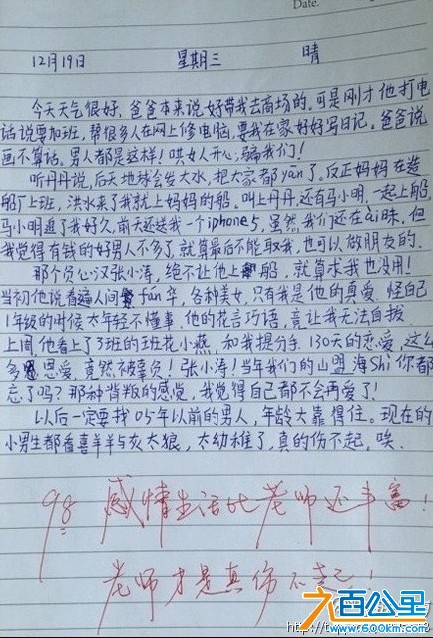 Date.
12月19日 星期三 晴
今天天气很好，爸爸本来说好带我去商场的。可是刚才他打电
话说要加班，帮很多人在网上修电恼，要我在家好好写日记。爸爸说
画不算话。男人都是这样！哄女人开心，骗我们！
听丹丹说，后天地球会发大水，把大家都yan了。反正妈妈在造
船厂上班，洪水来了我就上妈妈的船。叫上丹丹，还有马小明，一起上船
马小明追了我好久，前天还送我一个iphone5，虽然我们还在ai昧，但
我觉得有钱的好男人不多了，就算最后不能取我，也可以做朋友的。
那个负心汉张小涛，绝不让他上船，就算求我也没用！
当初他说看遍人间fan华，各种美女，只有我是他的真爱。怪自己
1年级的时候太年轻不懂事，他的花言巧语，竟让我无法自拔
上周他看上了3班的班花小燕，和我提分手。130天的恋爱，这么
多恩爱，竟然被辜负！张小涛！当年我们的山盟海Shi你都
忘了吗？那种背叛的感觉，我觉得自己都不会再爱了！
以后一定要找05年以前的男人，年龄大靠得住。现在的
小男生都看喜羊羊与灰太狼，太幼稚了，真的伤不起，唉。
98 感情生活比老师还丰富！
老师才是真伤不起
六百公里
www.600km.com